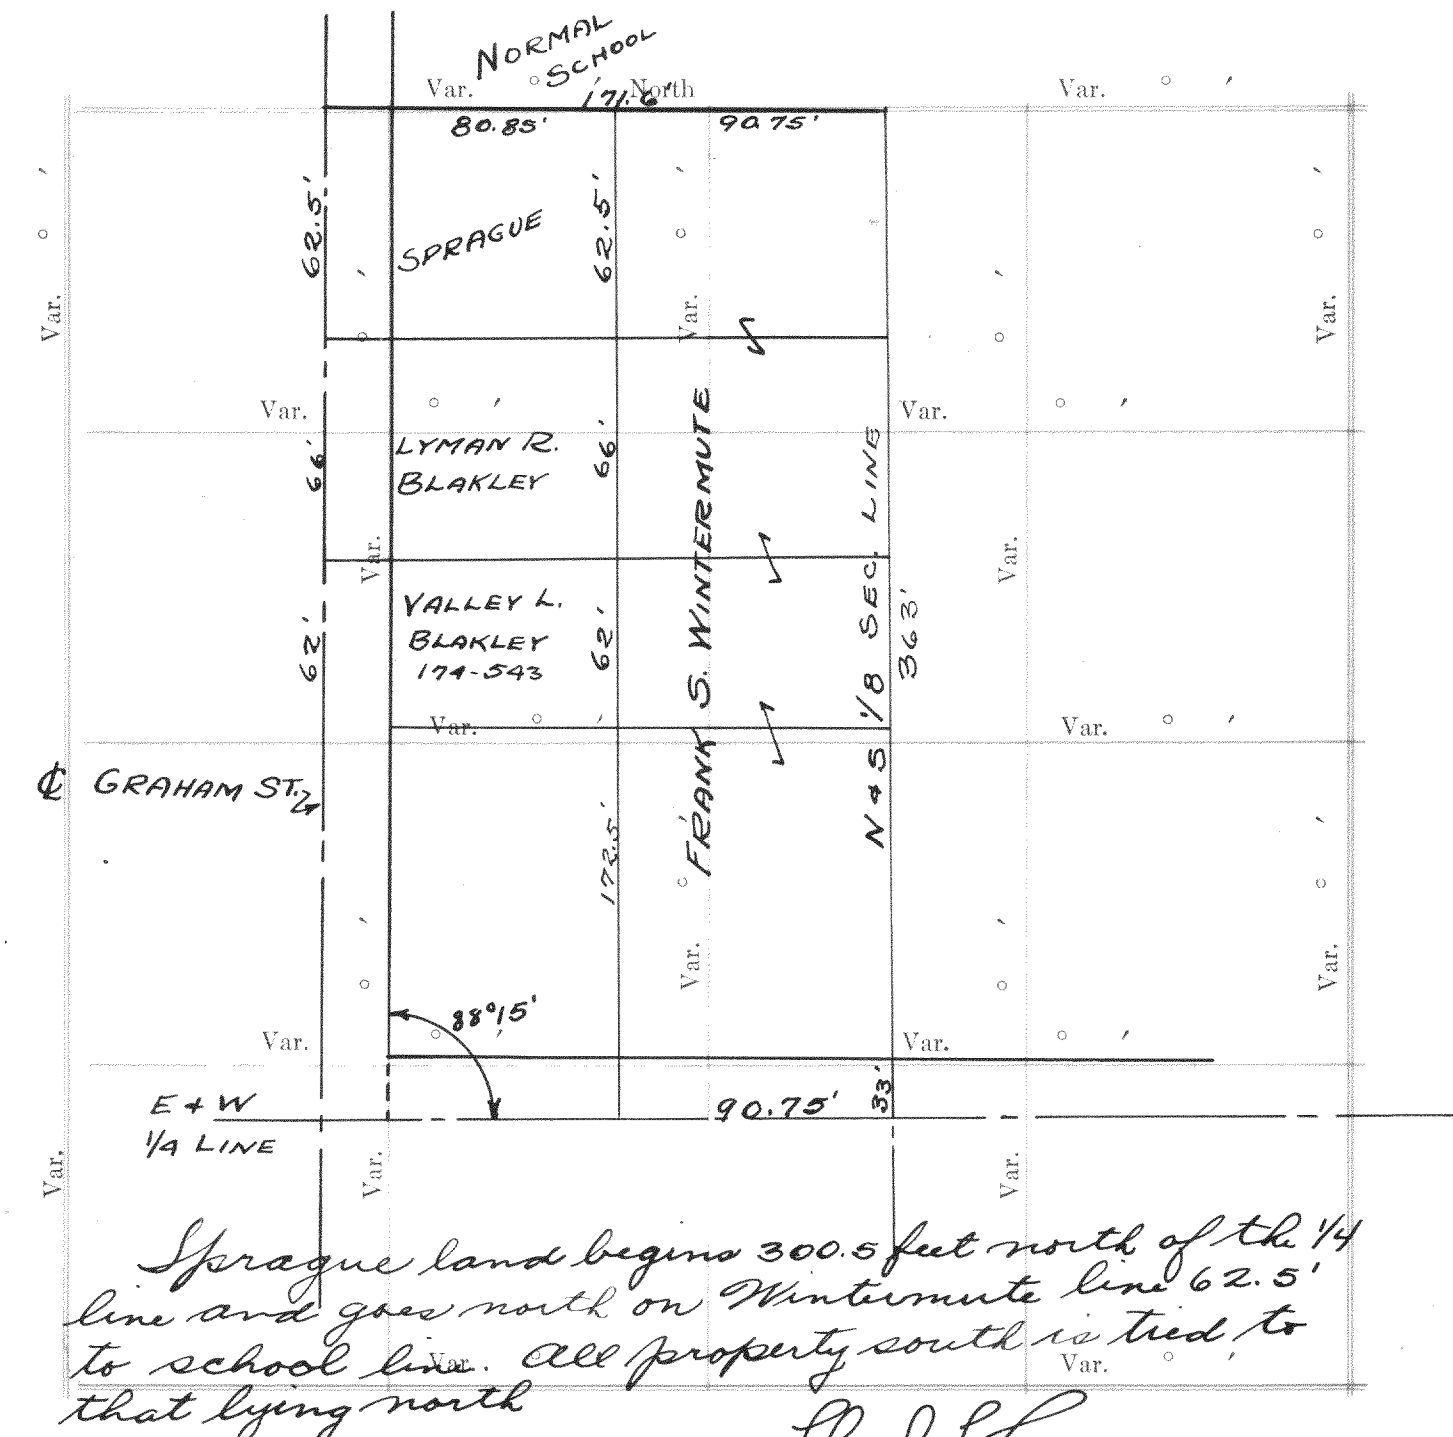 NORMAL
SCHOOL
Var. ° ′ North
171.6'
Var. ° ′
80.85' 90.75'
62.5' 62.5'
SPRAGUE
Var. Var. Var.
Var. ° ′ Var. ° ′
LYMAN R.
BLAKLEY
66' 66'
FRANK S. WINTERMUTE
N & S 1/8 SEC. LINE
363'
Var. Var.
VALLEY L.
BLAKLEY
174-543
62' 62'
Var. ° ′ Var. ° ′
℄ GRAHAM ST.
172.5'
Var. Var.
88°15'
Var. ° ′ Var. ° ′
33'
E & W
1/4 LINE
90.75'
Var. Var. Var.
Sprague land begins 300.5 feet north of the 1/4
line and goes north on Wintermute line 62.5'
to school line. All property south is tied to
Var. Var. ° ′
that lying north